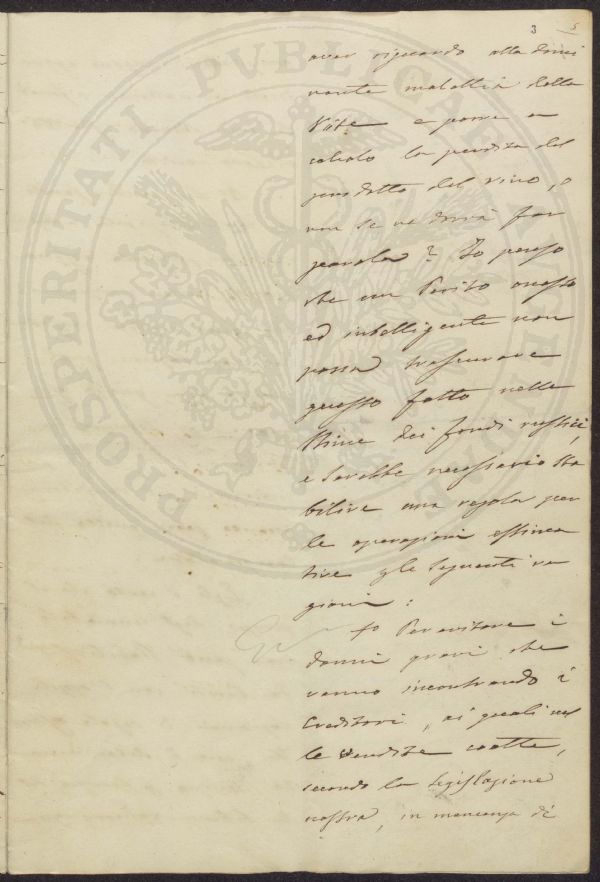 3 5
PROSPERITATI PUBLICAE AUGENDAE
aver riguardo alla domi
nante malattia della
Vite e porre a
calcolo la perdita del
prodotto del vino, o
non se ne dovrà far
parola? Io penso
che un Perito onesto
ed intelligente non
possa trascurare
questo fatto nelle
Stime dei fondi rustici,
e sarebbe necessario sta
bilire una regola per
le operazioni estima
tive per le seguenti ra
gioni:
1o Per evitare i
danni gravi che
vanno incontrando i
Creditori, ai quali nel
le Vendite coatte,
secondo la legislazione
nostra, in mancanza di